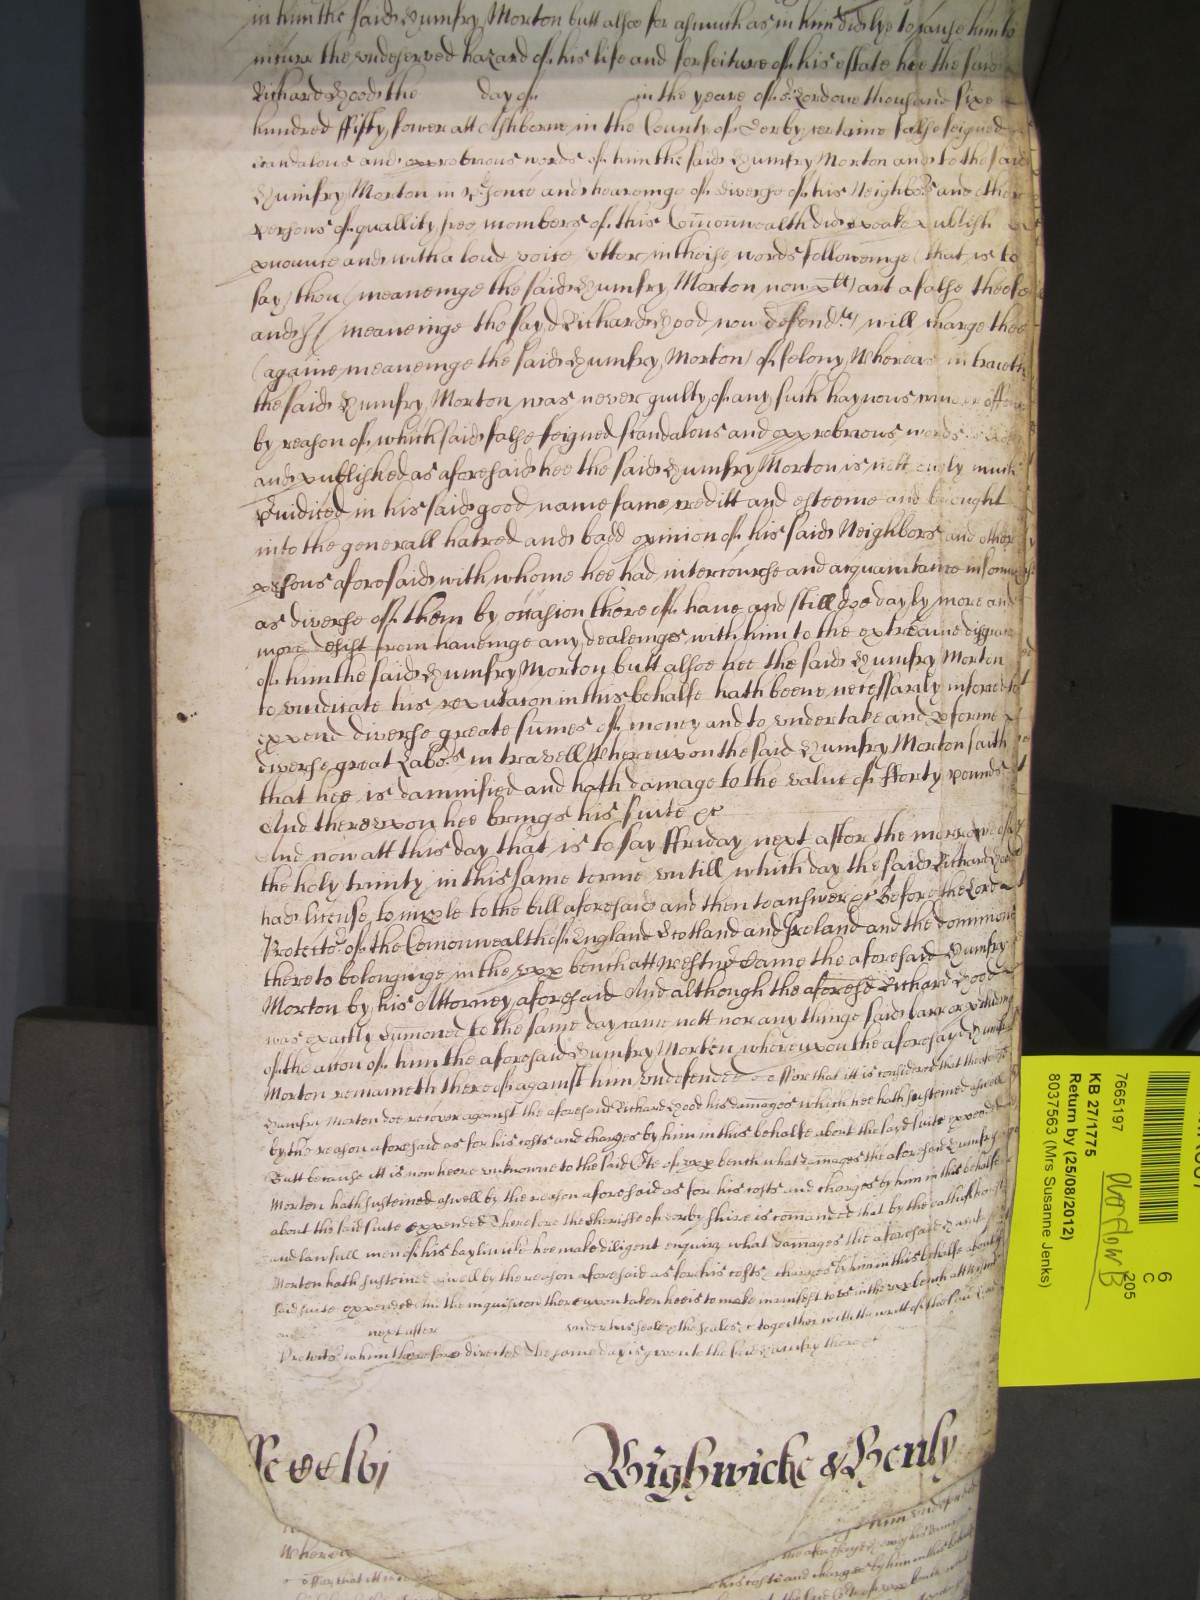 in him the said Humfry Morton butt alsoe for asmuch as in him did lye to cause him to
incurr the undeserved hazard of his life and forfeiture of his estate hee the said
Richard Hood the day of in the yeare of or Lord one thousand sixe
hundred ffifty fower att Ashborne in the County of Derby certaine false feigned
scandalous and opprobrious words of him the said Humfry Morton and to the said
Humfry Morton in prsence and heareinge of diverse of his Neighbors and other
persons of quallity free members of this Comonwealth did speake publish
pnounce and with a loud voice utter in theise words followeinge (that is to
say) thou (meaneinge the said Humfry Morton now plt) art a false theefe
and I (meaneinge the sayd Richard Hood now defendt) will charge thee
(againe meaneinge the said Humfry Morton) of felony Whereas in trueth
the said Humfry Morton was never guilty of any such haynous
by reason of which said false feigned scandalous and opprobrious words
and published as aforesaid hee the said Humfry Morton is nott onely much
pruidiced in his said good name fame creditt and esteeme and brought
into the generall hatred and badd opinion of his said Neighbors and other
psons aforesaid with whome hee had intercourse and acquaintance
as diverse of them by occasion thereof have and still doe day by more and
more desist from haveinge any dealeings with him to the extreame disgrace
of him the said Humfry Morton butt alsoe hee the said Humfry Morton
to vindicate his reputacon in this behalfe hath beene necessarily inforced to
expend diverse greate sumes of money and to undertake and pforme
diverse great Labors in travell Whereupon the said Humfry Morton saith
that hee is damnified and hath damage to the value of fforty pounds
And thereupon hee brings his suite &c
And now att this day that is to say ffriday next after the morrowe of
the holy trinity in this same terme untill which day the said Richard Hood
had license to imple to the bill aforesaid and then to answer &c Before the Lord
Protector of the Comonwealth of England Scotland and Ireland and the dominions
thereto belonginge in the upp bench att Westmr Came the aforesaid Humfry
Morton by his Attorney aforesaid And although the aforesd Richard Hood
was exactly sumoned to the same day came nott nor any thinge said in barr or
of the accon of him the aforesaid Humfry Morton whereupon the aforesayd Humfry
Morton remaineth thereof against him undefended Therefore itt is considered that the aforesd
Humfry Morton doe recover against the aforesaid Richard Hood his damages which hee hath susteined aswell
by the reason aforesaid as for his costs and charges by him in this behalfe about the said suite expended
Butt because itt is now heere unknowne to the said Cte of upp bench what damages the aforesaid Humfry
Morton hath susteined aswell by the reason aforesaid as for his costs and charges by him in this behalfe
about the said suite expended Therefore the sheriffe of Derby shire is comanded that by the oath of
and lawfull men of his bayliwicke hee make diligent enquiry what damages the aforesaid Humfry
Morton hath susteined aswell by the reason aforesaid as for his costs & charges by him in this behalfe about the
said suite expended And the inquisicon thereupon taken hee is to make manifest to us in the upp bench att Westmr
on next after under his seale & the seales &c together with the writt of the said Lord
Protector to him therefore directed The same day is given to the said Humfry there &c
Wighwicke & Henly
Whereas
KB 27/1775
7665197
Return by (25/08/2012)
8037563 (Mrs Susanne Jenks)
Overflow B
6
C
205